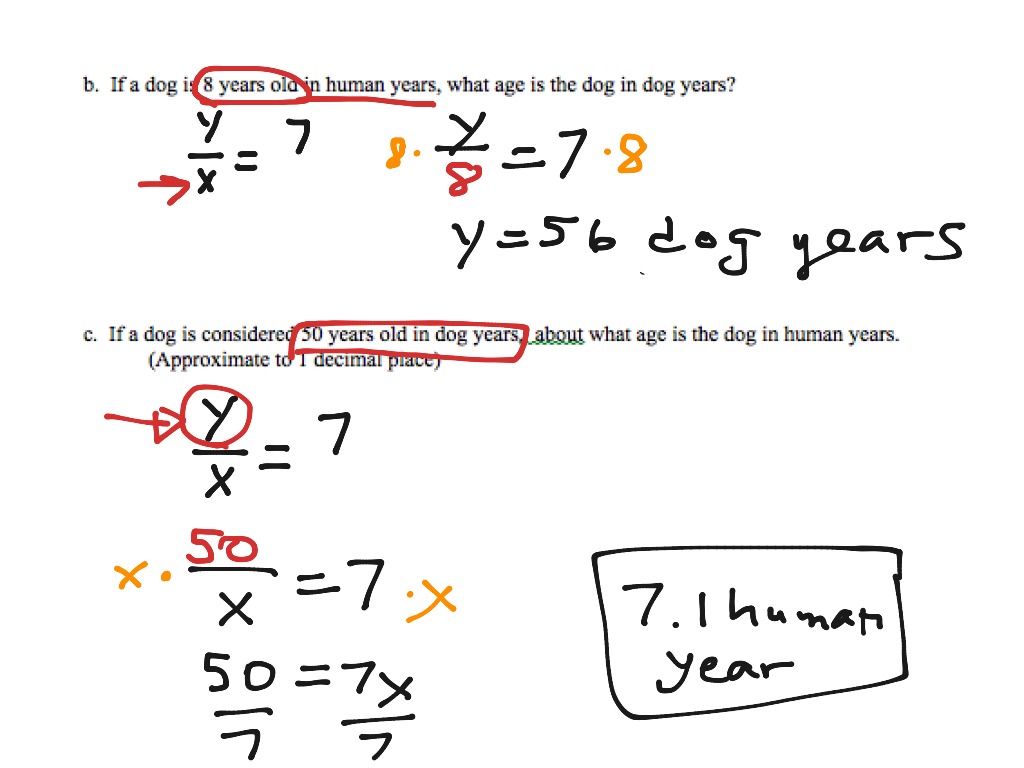 b. If a dog is 8 years old in human years, what age is the dog in dog years?
y/x = 7
8 · y/8 = 7 · 8
y = 56 dog years
c. If a dog is considered 50 years old in dog years, about what age is the dog in human years.
(Approximate to 1 decimal place)
y/x = 7
x · 50/x = 7 · x
50/7 = 7x/7
7.1 human
year